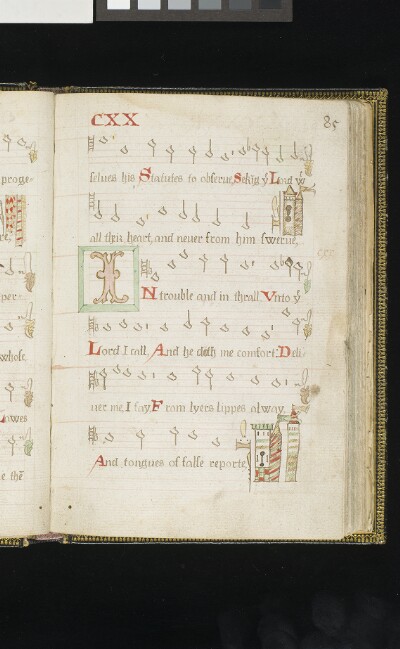 CXX
85
selues his Statutes to obserue, Sekĩg yͤ Lord wͭ
all thir heart, and neuer from him swerue,
CXX
IN trouble and in thrall Vnto yͤ
Lord I call, And he doth me comfort: Deli-
uer me, I say From lyers lippes alway
And tongues of false reporte,
proge-
re,
per-
whole
Lawes
e thẽ